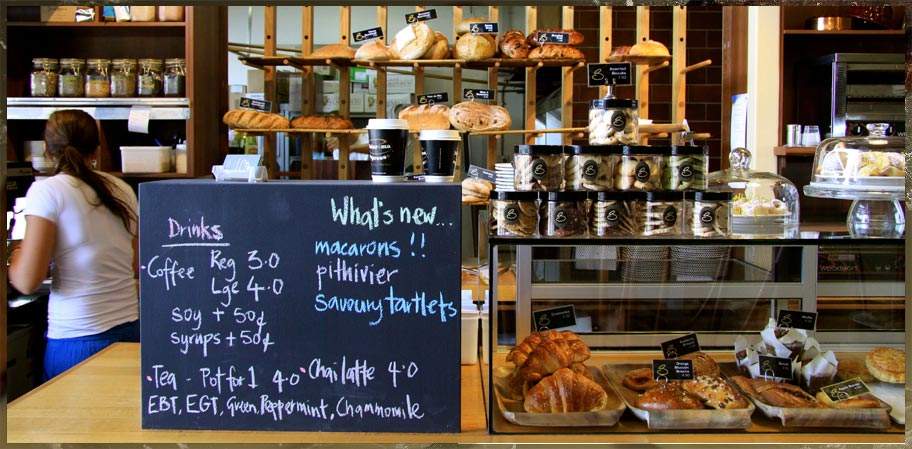 What's new...
Drinks
macarons !!
Coffee Reg 3.0
pithivier
Lge 4.0
savoury tartlets
soy + 50¢
syrups + 50¢
Tea - Pot for 1 4.0
Chai latte 4.0
EBT, EGT, Green, Peppermint, Chammomile